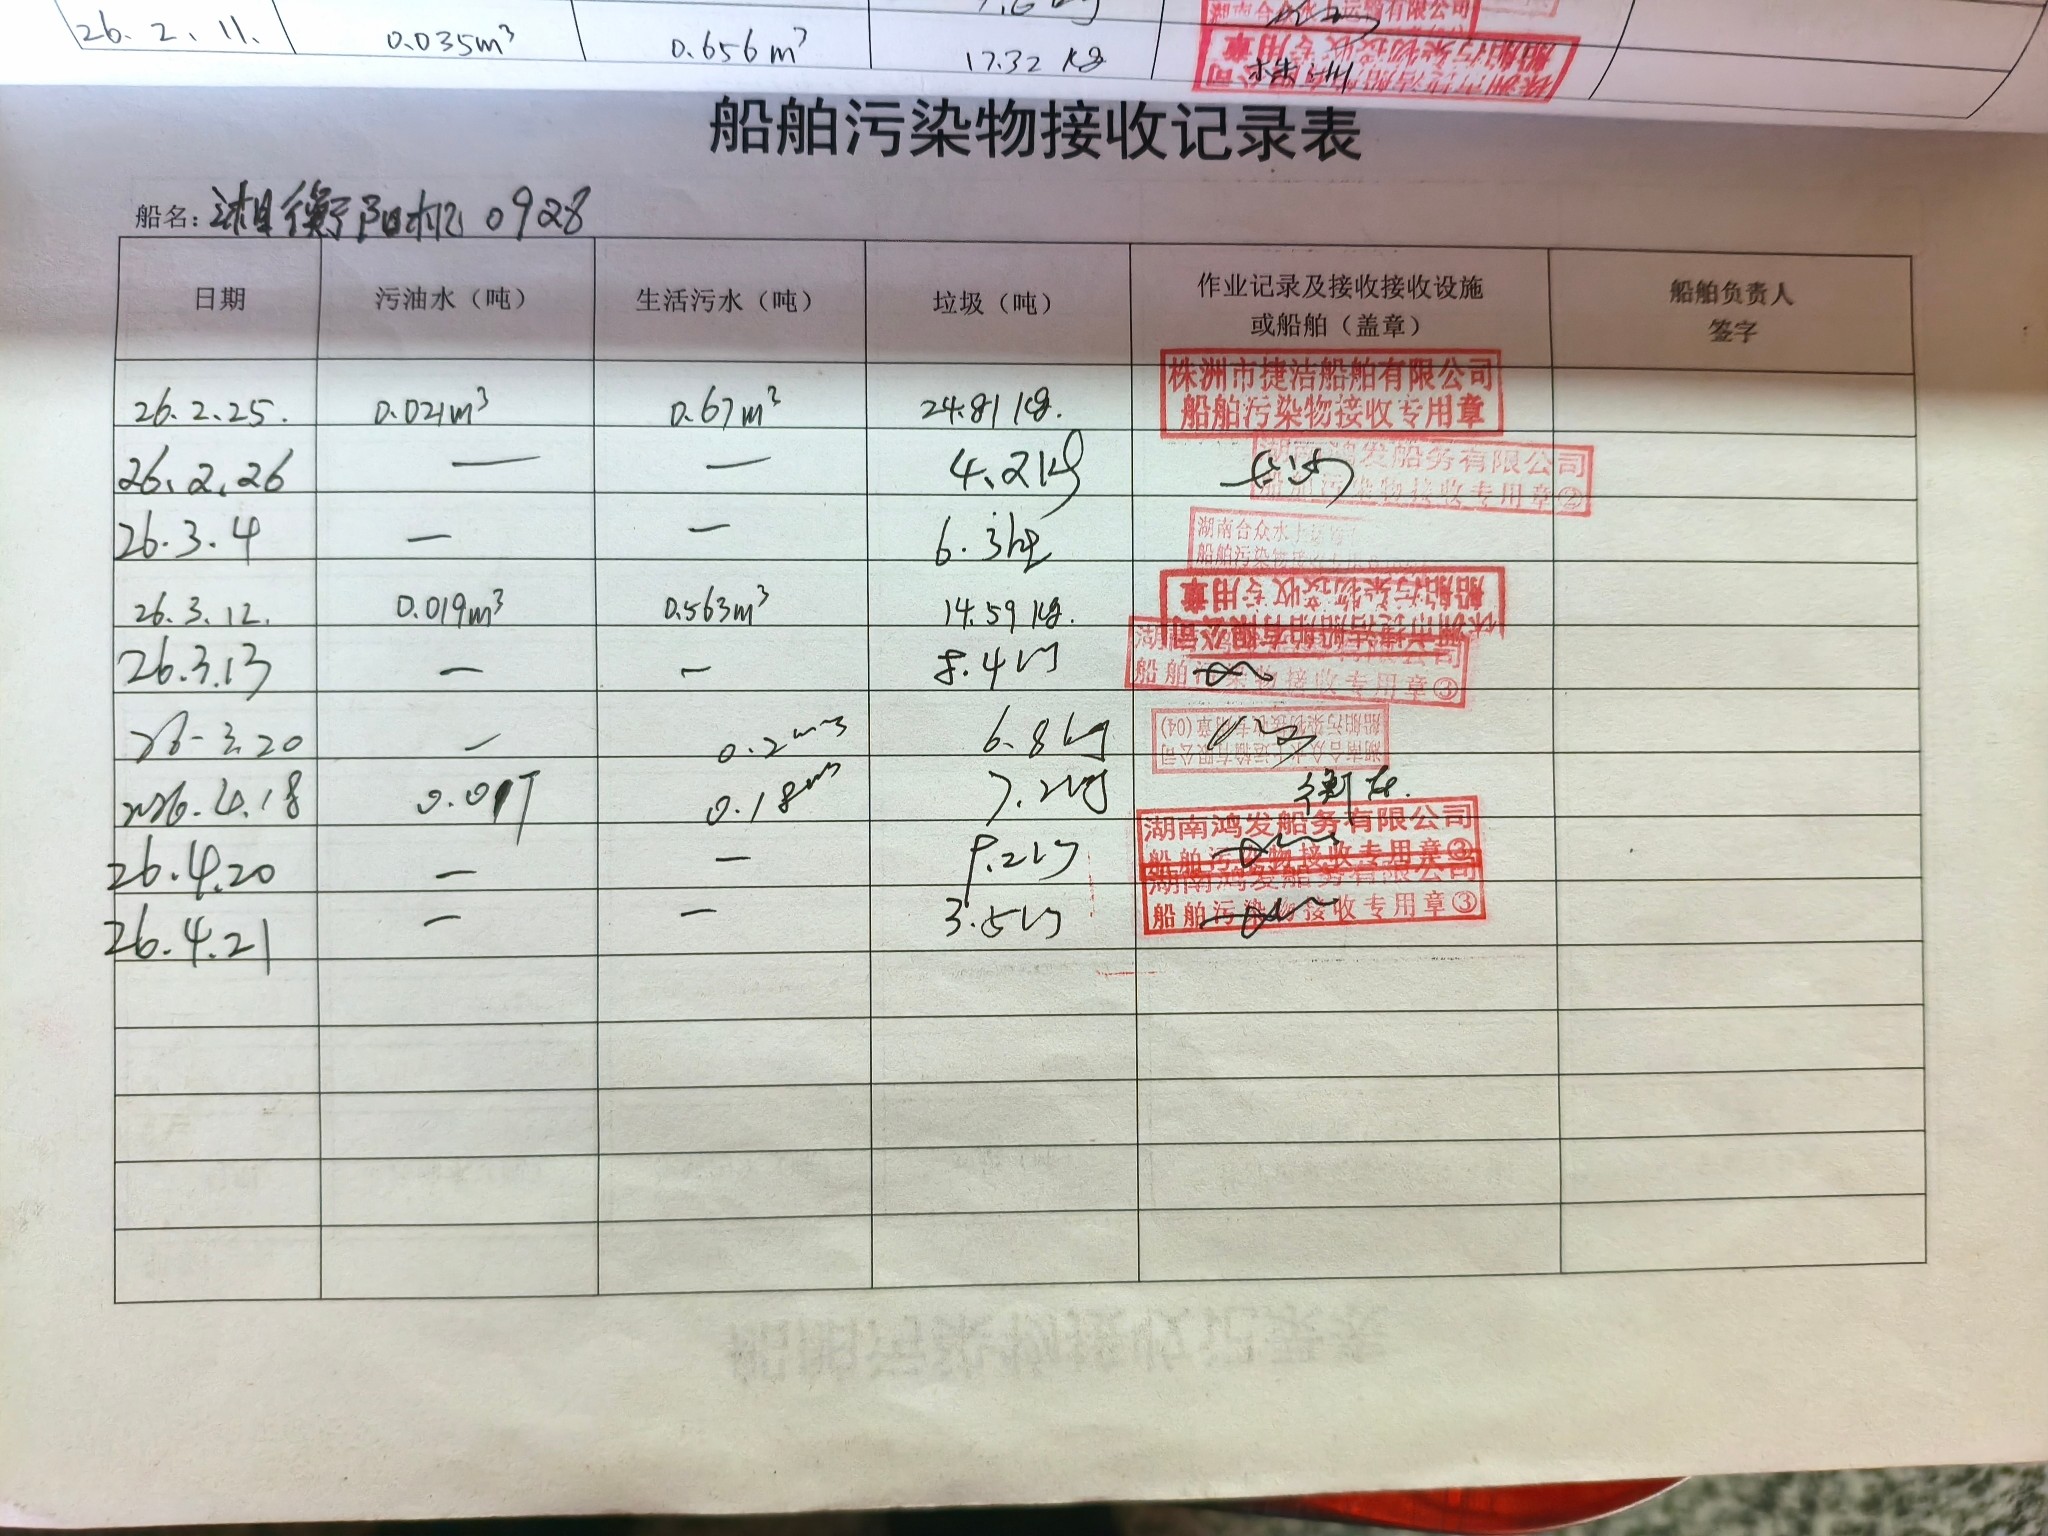 26.2.11. 0.035m³ 0.656m³ 17.32 kg 株洲
株洲市捷洁船舶有限公司
船舶污染物接收专用章
船舶污染物接收记录表
船名：湘衡阳机0928
日期 污油水（吨） 生活污水（吨） 垃圾（吨） 作业记录及接收接收设施或船舶（盖章） 船舶负责人签字
26.2.25. 0.021m³ 0.67m³ 24.81kg. 株洲市捷洁船舶有限公司
船舶污染物接收专用章
26.2.26 — — 4.2kg 长沙 湖南鸿发船务有限公司
船舶污染物接收专用章②
26.3.4 — — 6.3kg 湖南合众水上运
船舶污染物接收专用
26.3.12. 0.019m³ 0.563m³ 14.59kg. 株洲市捷洁船舶有限公司
船舶污染物接收专用章
26.3.13 — — 8.4kg 湖
船舶污染物接收专用章③
26-3.20 — 0.2m³ 6.8kg 湖南合众水上运输有限公司
船舶污染物接收专用章(04)
2026.4.18 0.18m³ 7.2kg 衡东.
26.4.20 — — 9.2kg 湖南鸿发船务有限公司
船舶污染物接收专用章③
26.4.21 — — 3.5kg 湖南鸿发船务有限公司
船舶污染物接收专用章③